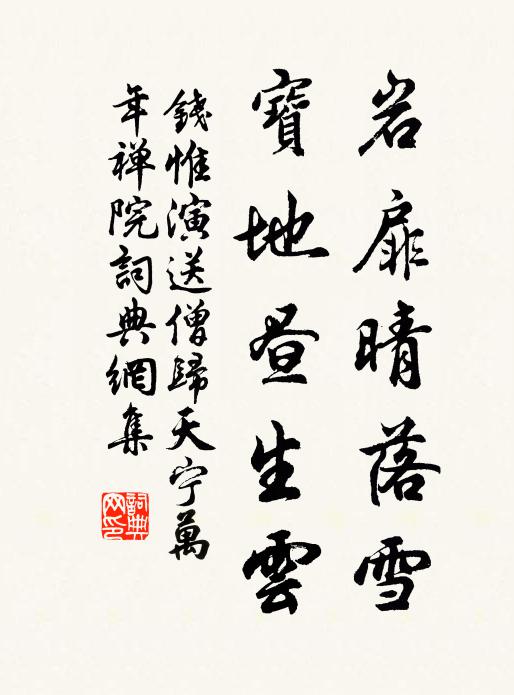 岩扉晴落雪
寶地昼生雲
錢惟演送僧歸天宁萬
年禅院詞典網集
詞典
网印